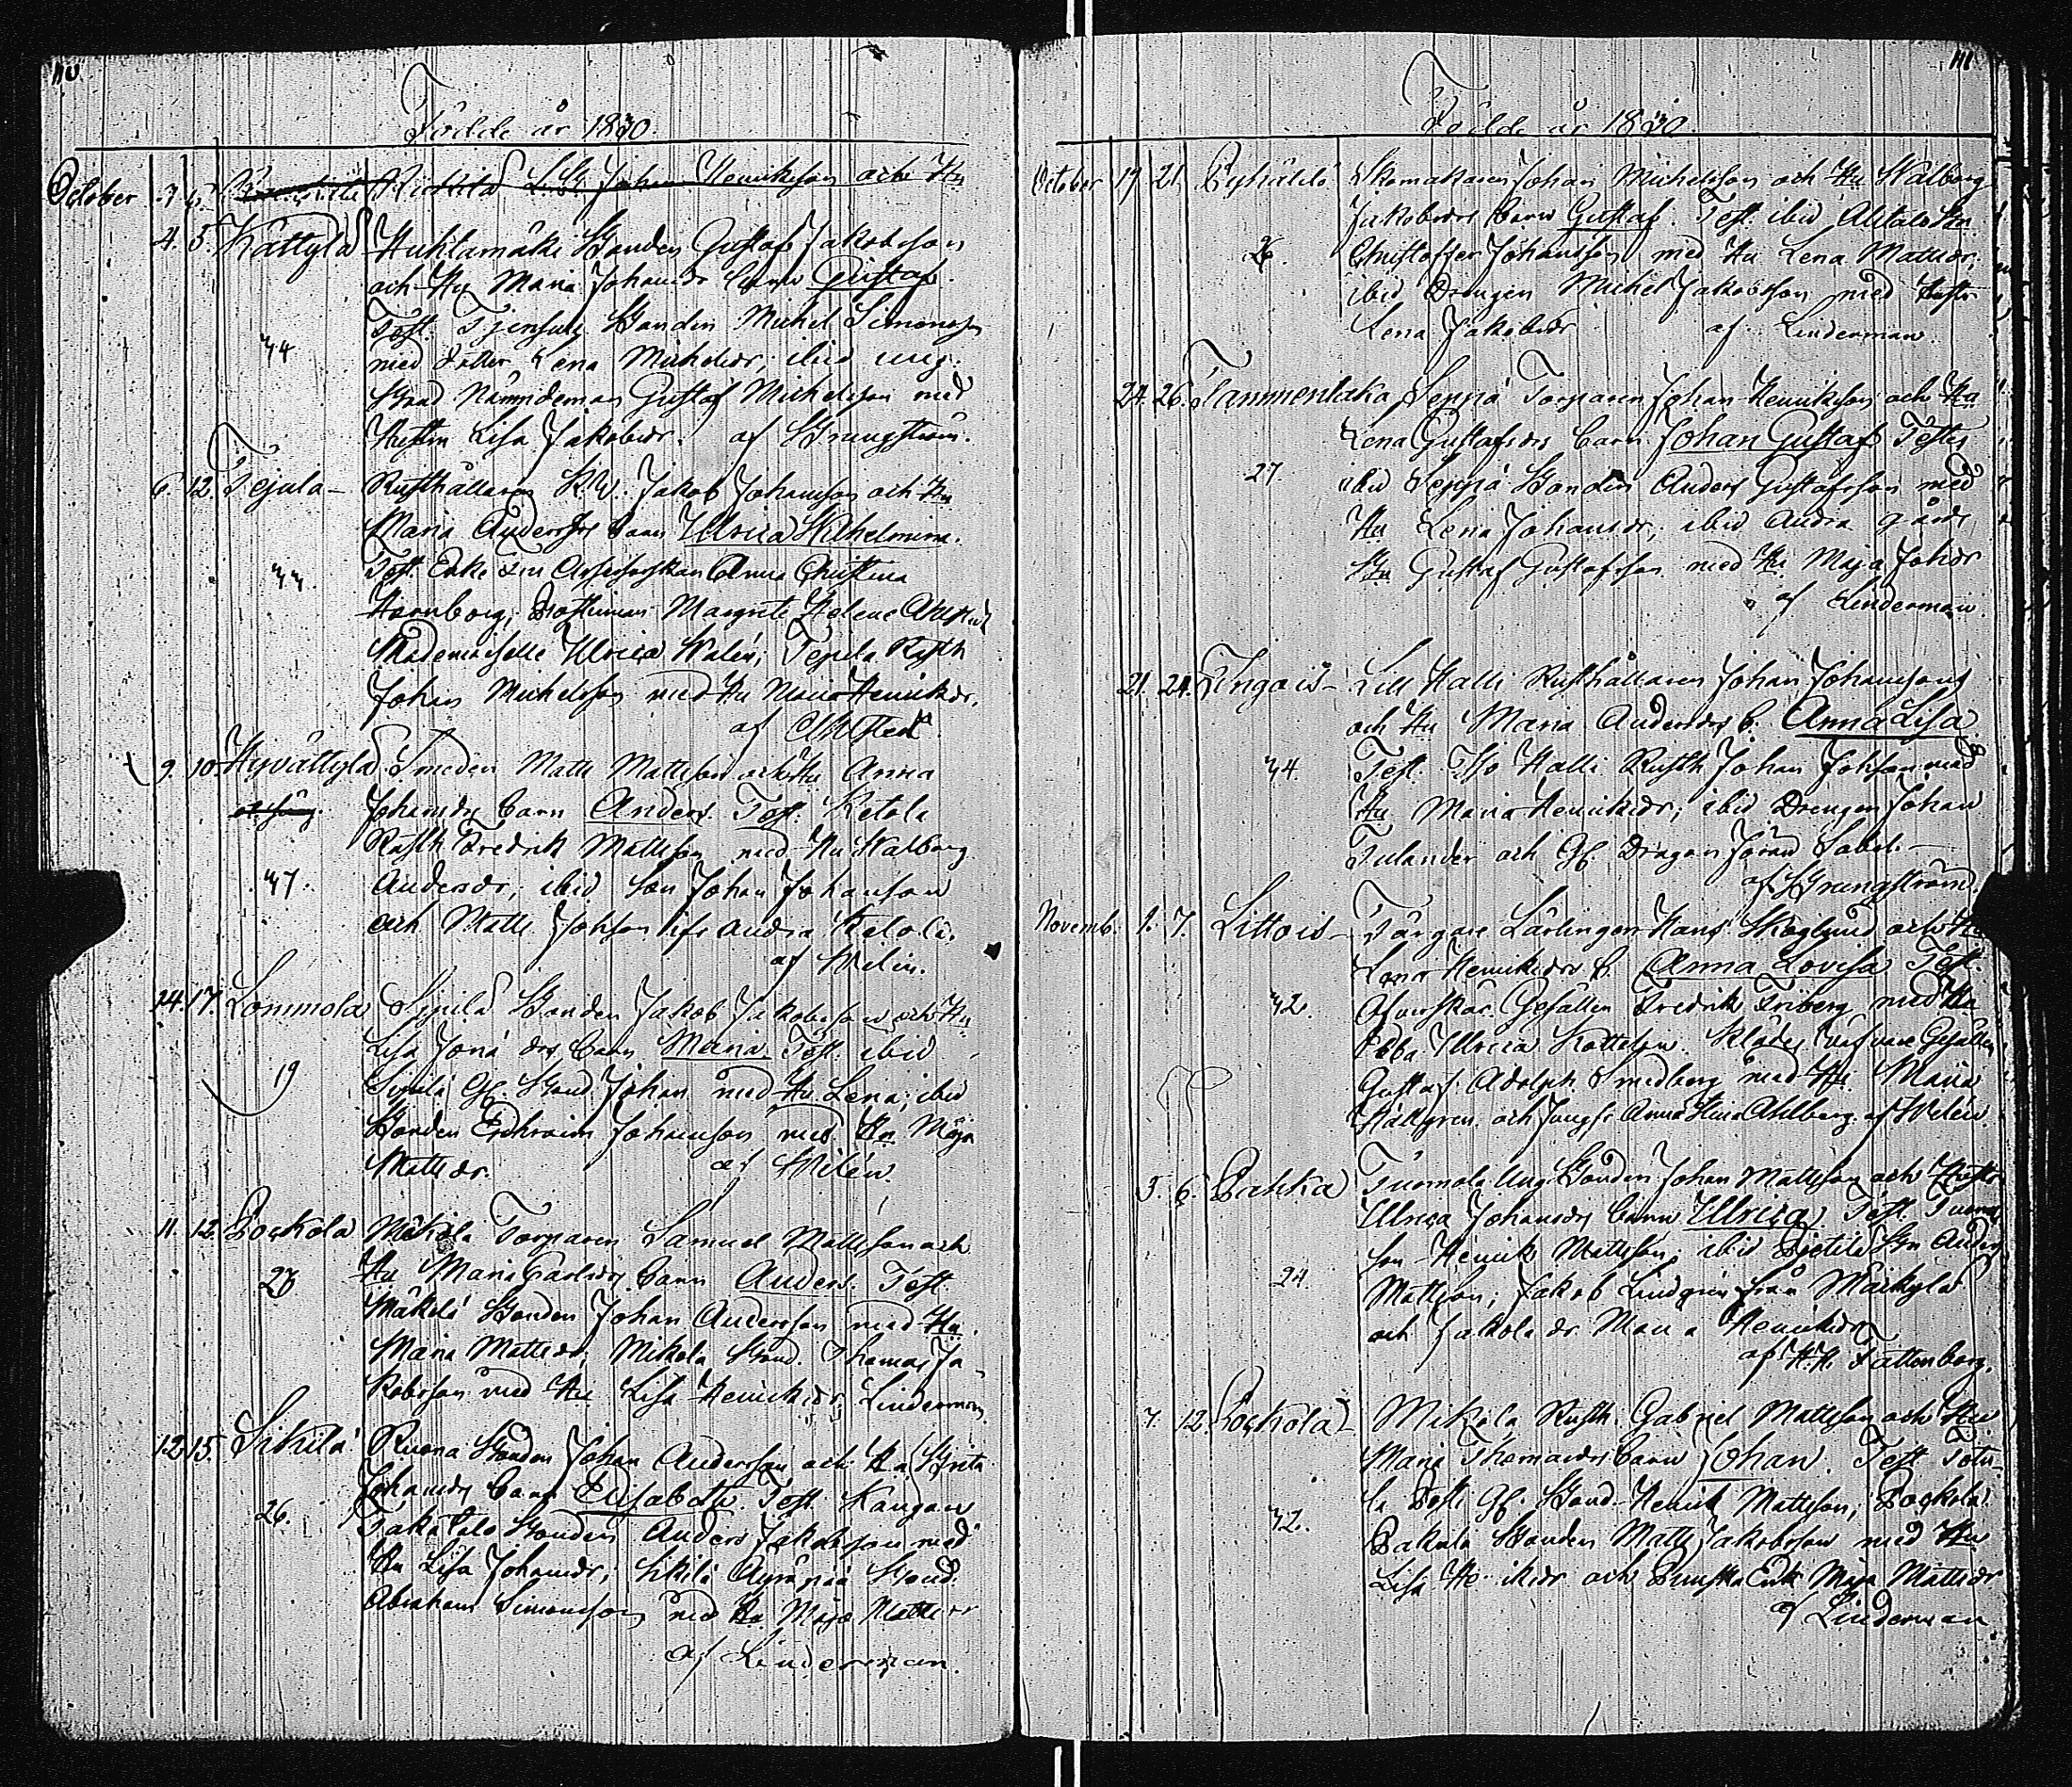 110
Födde år 1830.
October 3. 5. Kickilä Johan Henriksson och Hu
4. 5. Kättylä Huhtamäki Bonden Gustaf Jakobsson
och Hu Maria Johansdr barn Gustaf.
Test. Bonden Michel Simonss
44
med dotter Lena Michelsdr; ibid ung.
Nämndeman Gustaf Michelsson med
Hustru Lisa Jakobsdr. af Grungström.
6. 12. Tejula Rusthållaren Jakob Johansson och Hu
Maria Andersdrs barn Ulrica Wilhelmina.
Test. Enke Fru Anna Christina
44
Hornborg; Margreta Helena
Mademoiselle Ulrica Walén; Rusth
Johan Michelsson med Hu Maria Henriksdr.
af
9. 10. Hyvättylä Smeden Matts Mattsson och Hu Anna
Johansdrs barn Anders. Test. Ketola
Rusth Fredrik Mattsson med Hu Walborg
47.
Andersdr; ibid Son Johan Johansson
och Matts Johsson ifr andra Ketola.
af Welin.
14. 17. Lommola Sipilä Bonden Jakob Jakobsson och Hu
Lisa Jona drs barn Maria Test. ibid
19
Sipilä Gl. Bond. Johan med Hu Lena; ibid
Bonden Ephraim Johansson med Hu Maja
Matts dr. af Wilén.
11. 12. Pockola Mikola Torparen Samuel Mattsson och
Hu Maria Carlsdrs barn Anders. Test.
Mäkelä Bonden Johan Andersson med Hu
Maria Mattsdr, Mikola Bond. Thomas Ja-
kobsson med Hu Lisa Henriksdr. Linderman.
12. 15. Sikilä Ruona Bonden Johan Andersson och Hu Greta
Johansdrs barn Elisabeth. Test. Kangan
26.
Takatalo Bonden Anders Jakobsson med
Hu Lisa Johansdr; Sikilä Äyräpää Bond.
Abraham Simonsson med Hu Maja Mattsdr
af Linderman.
111
Födde år 1830.
October 19 21. Pyhältö Skomakaren Johan Michelsson och Hu Walborg
Jakobsdrs barn Gustaf. Test. ibid Alitalo Bn
26.
Christoffer Johansson med Hu Lena Mattsdr,
ibid Drengen Michel Jakobsson med Hustr
Lena Jakobsdr af Linderman.
24. 26. Tammentaka Seppä Torparen Johan Henriksson och Hu
Lena Gustafsdrs barn Johan Gustaf Testes
27.
ibid Seppä Bonden Anders Gustafsson med
Hu Lena Johansdr; ibid Andra gårds
Bn Gustaf Gustafsson med Hu Maja Johsdr
af Linderman
21. 24. Lingois Lill Halli Rusthållaren Johan Johansson
och Hu Maria Andersdrs b. Anna Lisa.
44.
Test. Iso Halli Rusth Johan Johsson med
Hu Maria Henriksdr; ibid Drengen Johan
Tulander och Gl. Dragon Jöran Sabel.
af Grungström.
Novemb. 1. 7. Littois Färgare Lärlingen Hans Skoglund och Hu
Lena Henriksdrs b. Anna Lovisa Test.
42.
Öfverskär. Gesällen Fredrik Friberg med Hu
Ebba Ulrica Kottelin. Klädes väfvare Gesällen
Gustaf Adolph Smedberg med Hu Maria
Hällgren och Jungfr Anna Stina Ahlberg af Welén.
5. 6. Pahka Tuomola Ung Bonden Johan Mattsson och Hustr
Ulrica Johansdrs barn Ulrica. Test. Tuomola
son Henrik Mattsson; ibid Pietilä Bn Anders
24.
Mattsson; Jakob Lindgrén från Maikylä
och Jakola dr Maria Henriksdr
af Hr Tattenborg.
7. 12. Pockola Mikola Rusth. Gabriel Mattsson och Hu
Maria Thomasdrs barn Johan. Test Totu-
la Gl. Bond Henrik Mattsson; Pockola
42.
Pakula Bonden Matts Jakobsson med Hu
Lisa Henriksdr och Enk Maja Mattsdr
af Linderman